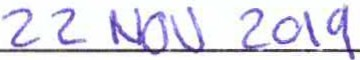 22 NOV 2019